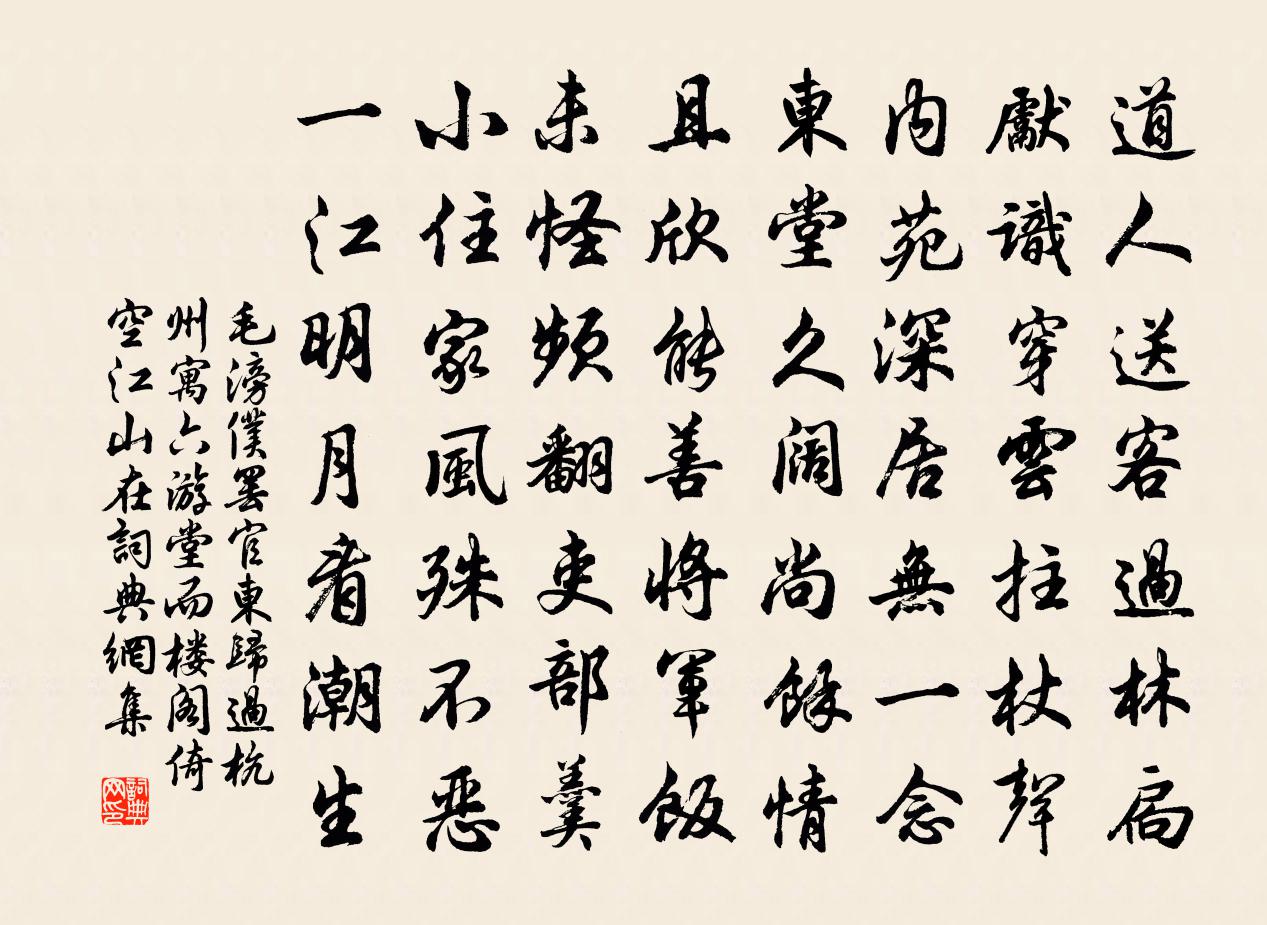 道人送客過林扃
獻識穿雲拄杖聲
内苑深居無一念
東堂久闊尚餘情
且欣能善將軍飯
未怪頻翻吏部羹
小住家風殊不惡
一江明月看潮生
毛滂僕罷官東歸過杭
州寓六游堂而楼阁倚
空江山在詞典網集
詞典网印